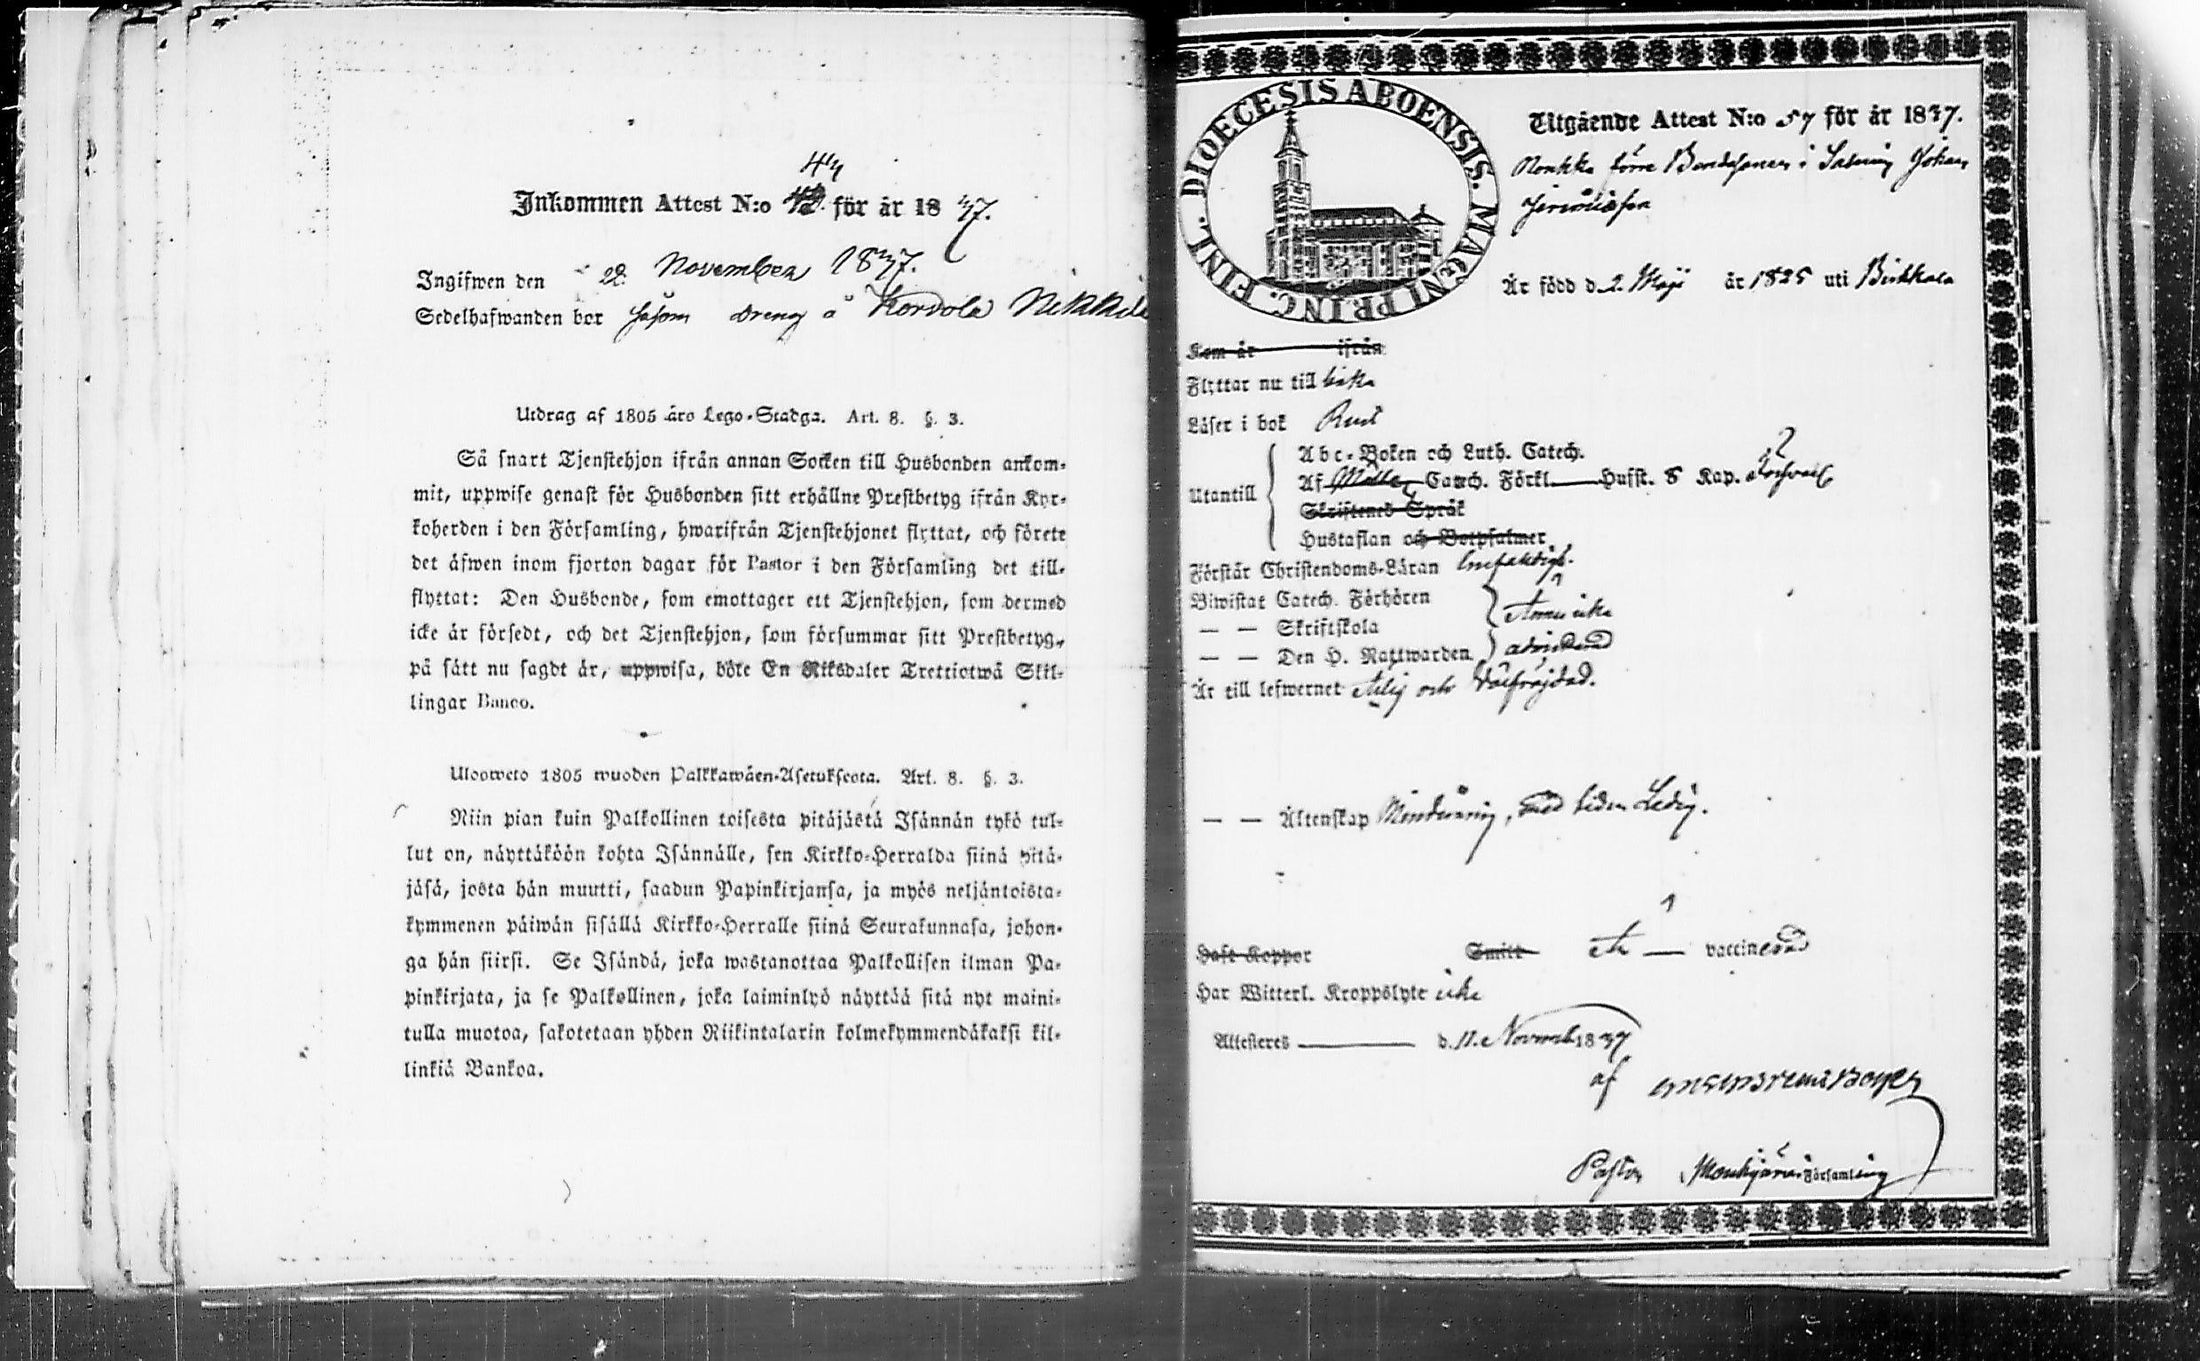 44
Inkommen Attest N:o för år 1837.
Ingifwen den 28 November 1837.
Sedelhafwanden bor såsom dreng å Kordola Nikkilä
Utdrag af 1805 års Lego-Stadga. Art. 8. §. 3.
Så snart Tjenstehjon ifrån annan Socken till Husbonden ankom-
mit, uppwise genast för Husbonden sitt erhållne Prestbetyg ifrån Kyr-
koherden i den Församling, hwarifrån Tjenstehjonet flyttat, och förete
det äfwen inom fjorton dagar för Pastor i den Församling det till-
flyttat: Den Husbonde, som emottager ett Tjenstehjon, som dermed
icke är försedt, och det Tjenstehjon, som försummar sitt Prestbetyg,
på sätt nu sagdt är, uppwisa, böte En Riksdaler Trettiotwå Skil-
lingar Banco.
Ulosweto 1805 wuoden Palkkawäen-Asetuksesta. Art. 8. §. 3.
Niin pian kuin Palkollinen toisesta pitäjästä Isännän tykö tul-
lut on, näyttäköön kohta Isännälle, sen Kirkko-Herralda siinä pitä-
jäsä, josta hän muutti, saadun Papinkirjansa, ja myös neljäntoista-
kymmenen päiwän sisällä Kirkko-Herralle siinä Seurakunnasa, johon-
ga hän siirsi. Se Isändä, joka wastanottaa Palkollisen ilman Pa-
pinkirjata, ja se Palkollinen, joka laiminlyö näyttää sitä nyt maini-
tulla muotoa, sakotetaan yhden Riikintalarin kolmekymmendäkaksi kil-
linkiä Bankoa.
DIOECESIS ABOENSIS. MAGNI PRINC. FINL.
Utgående Attest N:o 57 för år 1837.
förre Bondesonen i Johan
Är född d. 2. Maji år 1825 uti Birkkala
Kom år ifrån
Flyttar nu till
Läser i bok Rent
Utantill
Abc-Boken och Luth. Catech.
Af Catech. Förkl. Husst. 8 Kap.
Skriftenes Språk
Hustaflan och Botpsalmer
Förstår Christendoms-Läran Enfaldigt.
Biwistat Catech. Förhören
— — Skriftskola Ännu icke
— — Den H. Nattwarden admitterad
Är till lefwernet Ärlig och Välfräjdad.
— — Äktenskap Minderårig, med tiden Ledig.
Haft Koppor Smitt Är — vaccinerad
Har Witterl. Kroppslyte icke
Attesteras d. 11. Novemb 1837
af
Pastor Mouhijärvi Församling